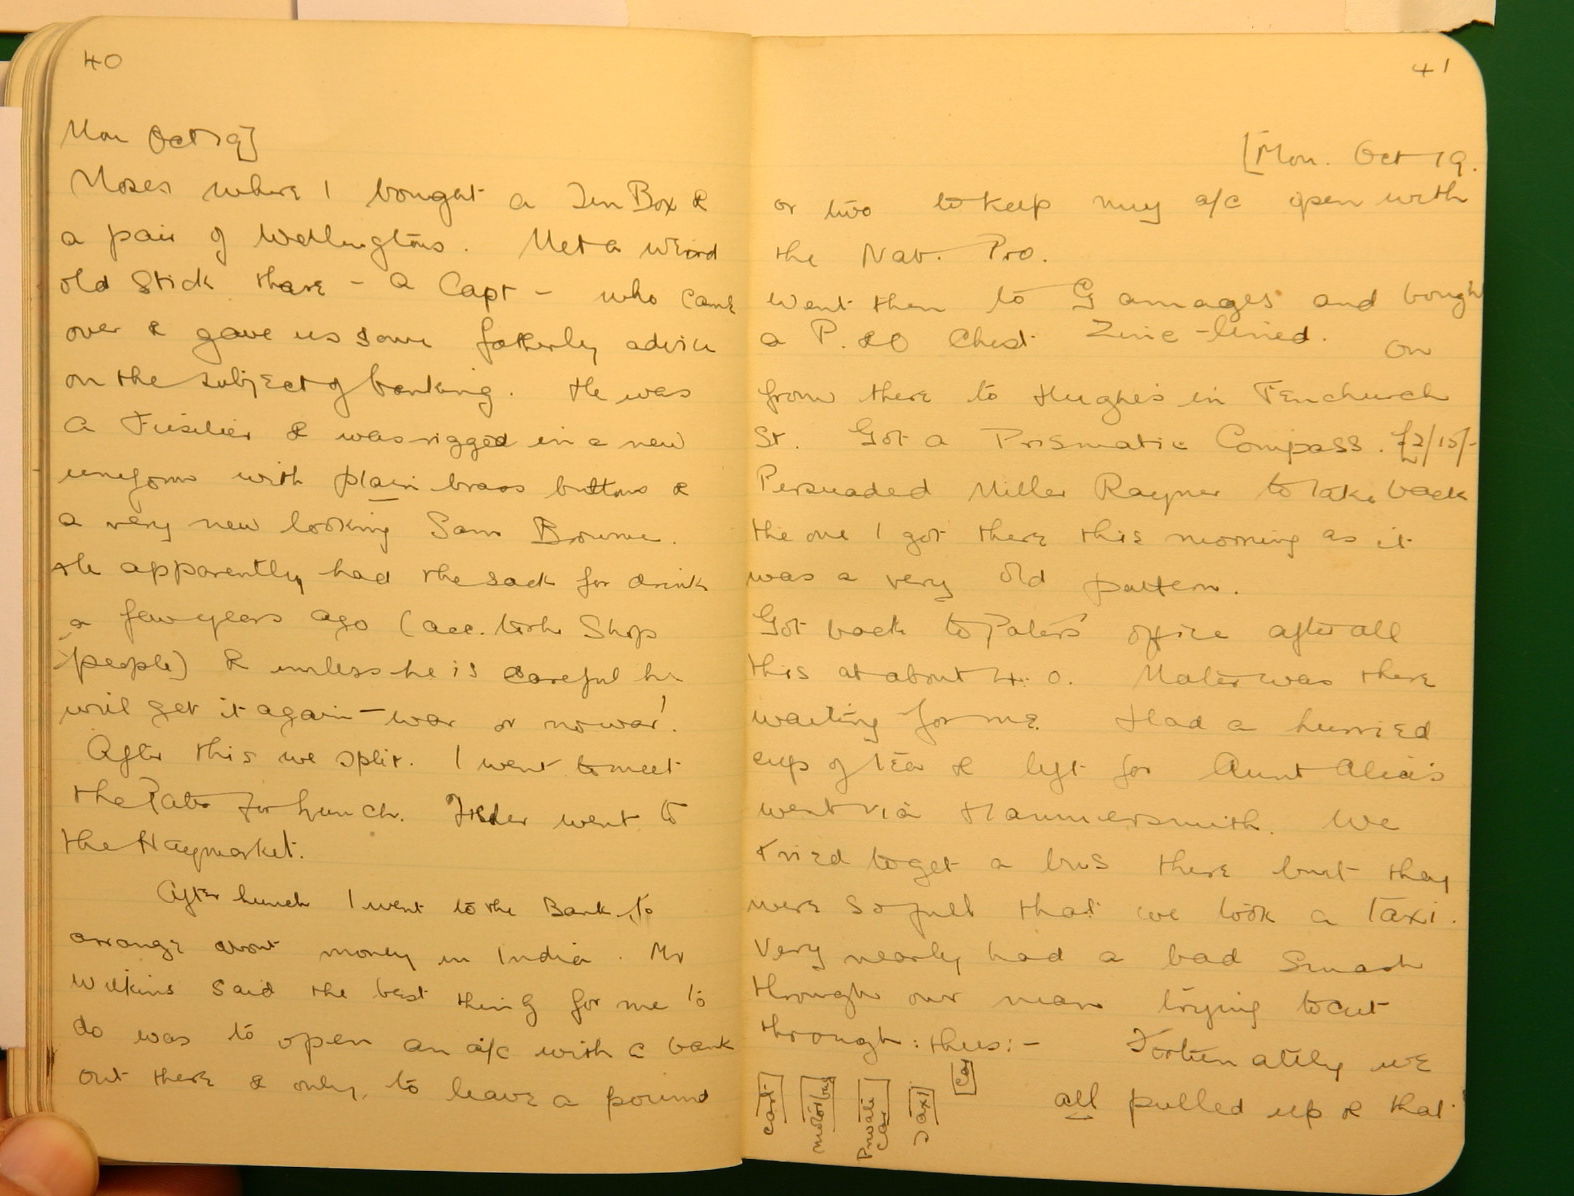 40
Mon Oct 19]
Moses where I bought a Tin Box &
a pair of Wellingtons. Met a weird
old stick there - a Capt - who came
over & gave us some fatherly advice
on the subject of banking. He was
a Fusilier & was rigged in a new
uniform with plain brass buttons &
a very new looking Sam Browne.
He apparently had the sack for drink
a few years ago (acc. to the Shop
people) & unless he is careful he
will get it again - war or no war!
After this we split. I went to meet
the Pater for lunch. went to
the Haymarket.
After lunch I went to the Bank to
arrange about money in India. Mr
Wilkins said the best thing for me to
do was to open an a/c with a bank
out there & only to leave a pound
41
[Mon. Oct 19.
or two to keep my a/c open with
the Nat. Pro.
Went then to Gamages and bought
a P. & O Chest Zinc-lined. On
from there to Hughes in Fenchurch
St. Got a Prismatic Compass. £2/15/-
Persuaded Miller Rayner to take back
the one I got there this morning as it
was a very old pattern.
Got back to Pater's office after all
this at about 4.0. Mater was there
waiting for me. Had a hurried
cup of tea & left for Aunt Alice's
went via Hammersmith. We
tried to get a bus there but they
were so full that we took a taxi.
Very nearly had a bad smash
through our man trying to cut
through: thus:- Fortunately we
all pulled up & that
cart
motor bus
Private car
Taxi
car